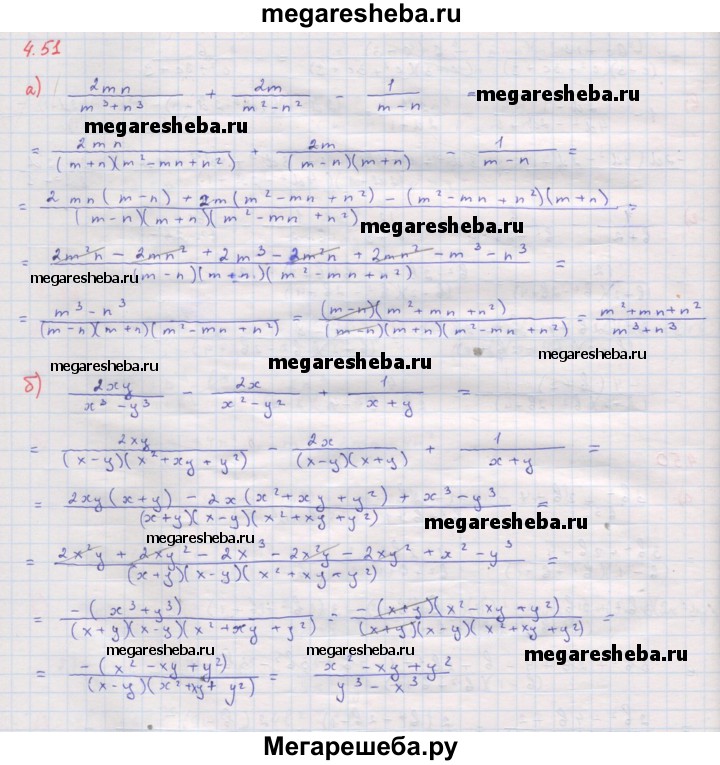 megaresheba.ru
4.51
а) 2mn/(m³+n³) + 2m/(m²-n²) - 1/(m-n) = megaresheba.ru
megaresheba.ru
= 2mn/((m+n)(m²-mn+n²)) + 2m/((m-n)(m+n)) - 1/(m-n) =
= (2mn(m-n) + 2m(m²-mn+n²) - (m²-mn+n²)(m+n))/((m-n)(m+n)(m²-mn+n²)) =
megaresheba.ru
= (2m²n - 2mn² + 2m³ - 2m²n + 2mn² - m³ - n³)/((m-n)(m+n)(m²-mn+n²)) =
megaresheba.ru
= (m³-n³)/((m-n)(m+n)(m²-mn+n²)) = ((m-n)(m²+mn+n²))/((m-n)(m+n)(m²-mn+n²)) = (m²+mn+n²)/(m³+n³)
megaresheba.ru megaresheba.ru megaresheba.ru
б) 2xy/(x³-y³) - 2x/(x²-y²) + 1/(x+y) =
= 2xy/((x-y)(x²+xy+y²)) - 2x/((x-y)(x+y)) + 1/(x+y) =
= (2xy(x+y) - 2x(x²+xy+y²) + x³-y³)/((x+y)(x-y)(x²+xy+y²)) =
megaresheba.ru megaresheba.ru
= (2x²y + 2xy² - 2x³ - 2x²y - 2xy² + x² - y³)/((x+y)(x-y)(x²+xy+y²)) =
= (-(x³+y³))/((x+y)(x-y)(x²+xy+y²)) = (-(x+y)(x²-xy+y²))/((x+y)(x-y)(x²+xy+y²)) =
megaresheba.ru megaresheba.ru megaresheba.ru
= (-(x²-xy+y²))/((x-y)(x²+xy+y²)) = (x²-xy+y²)/(y³-x³)
Мегарешеба.ру